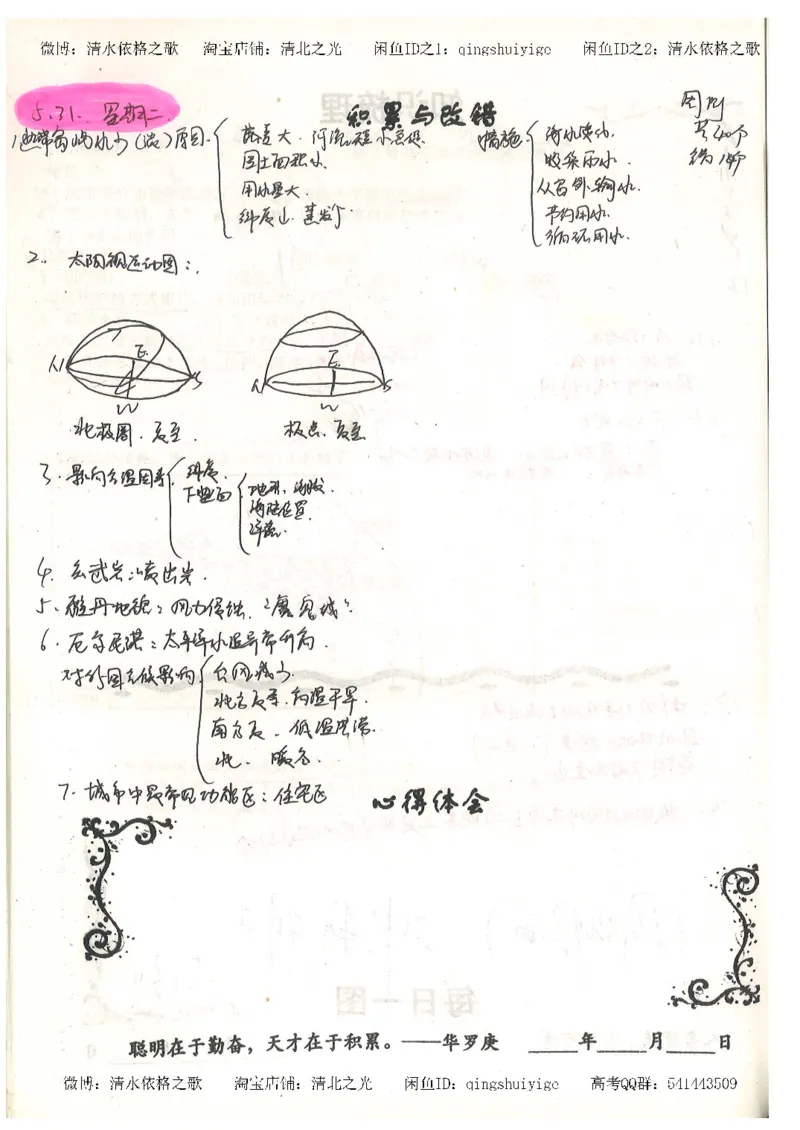 微博：清水依格之歌 淘宝店铺：清北之光 闲鱼ID之1：qingshuiyige 闲鱼ID之2：清水依格之歌
5.31. 星期二
积累与改错
原因
蒸发大．河流短小急促
国土面积小
用水量大
措施
海水淡水
收集雨水
从台外输水
节约用水
循环用水
2. 太阳视运动图：
N E S W
N E S W
北极圈．夏至
极点．夏至
3. 影响气温因素
纬度
下垫面
地形．海拔
海陆位置
洋流
4. 玄武岩：喷出岩．
5. 雅丹地貌：风力侵蚀．“魔鬼城”
6. 厄尔尼诺：太平洋水温异常升高．
对我国气候影响
台风减少
北方夏季．高温干旱．
南方夏．低温洪涝．
北．暖冬．
7. 城市中最常见功能区：住宅区
心得体会
聪明在于勤奋，天才在于积累。——华罗庚 年 月 日
微博：清水依格之歌 淘宝店铺：清北之光 闲鱼ID：qingshuiyige 高考QQ群：541443509